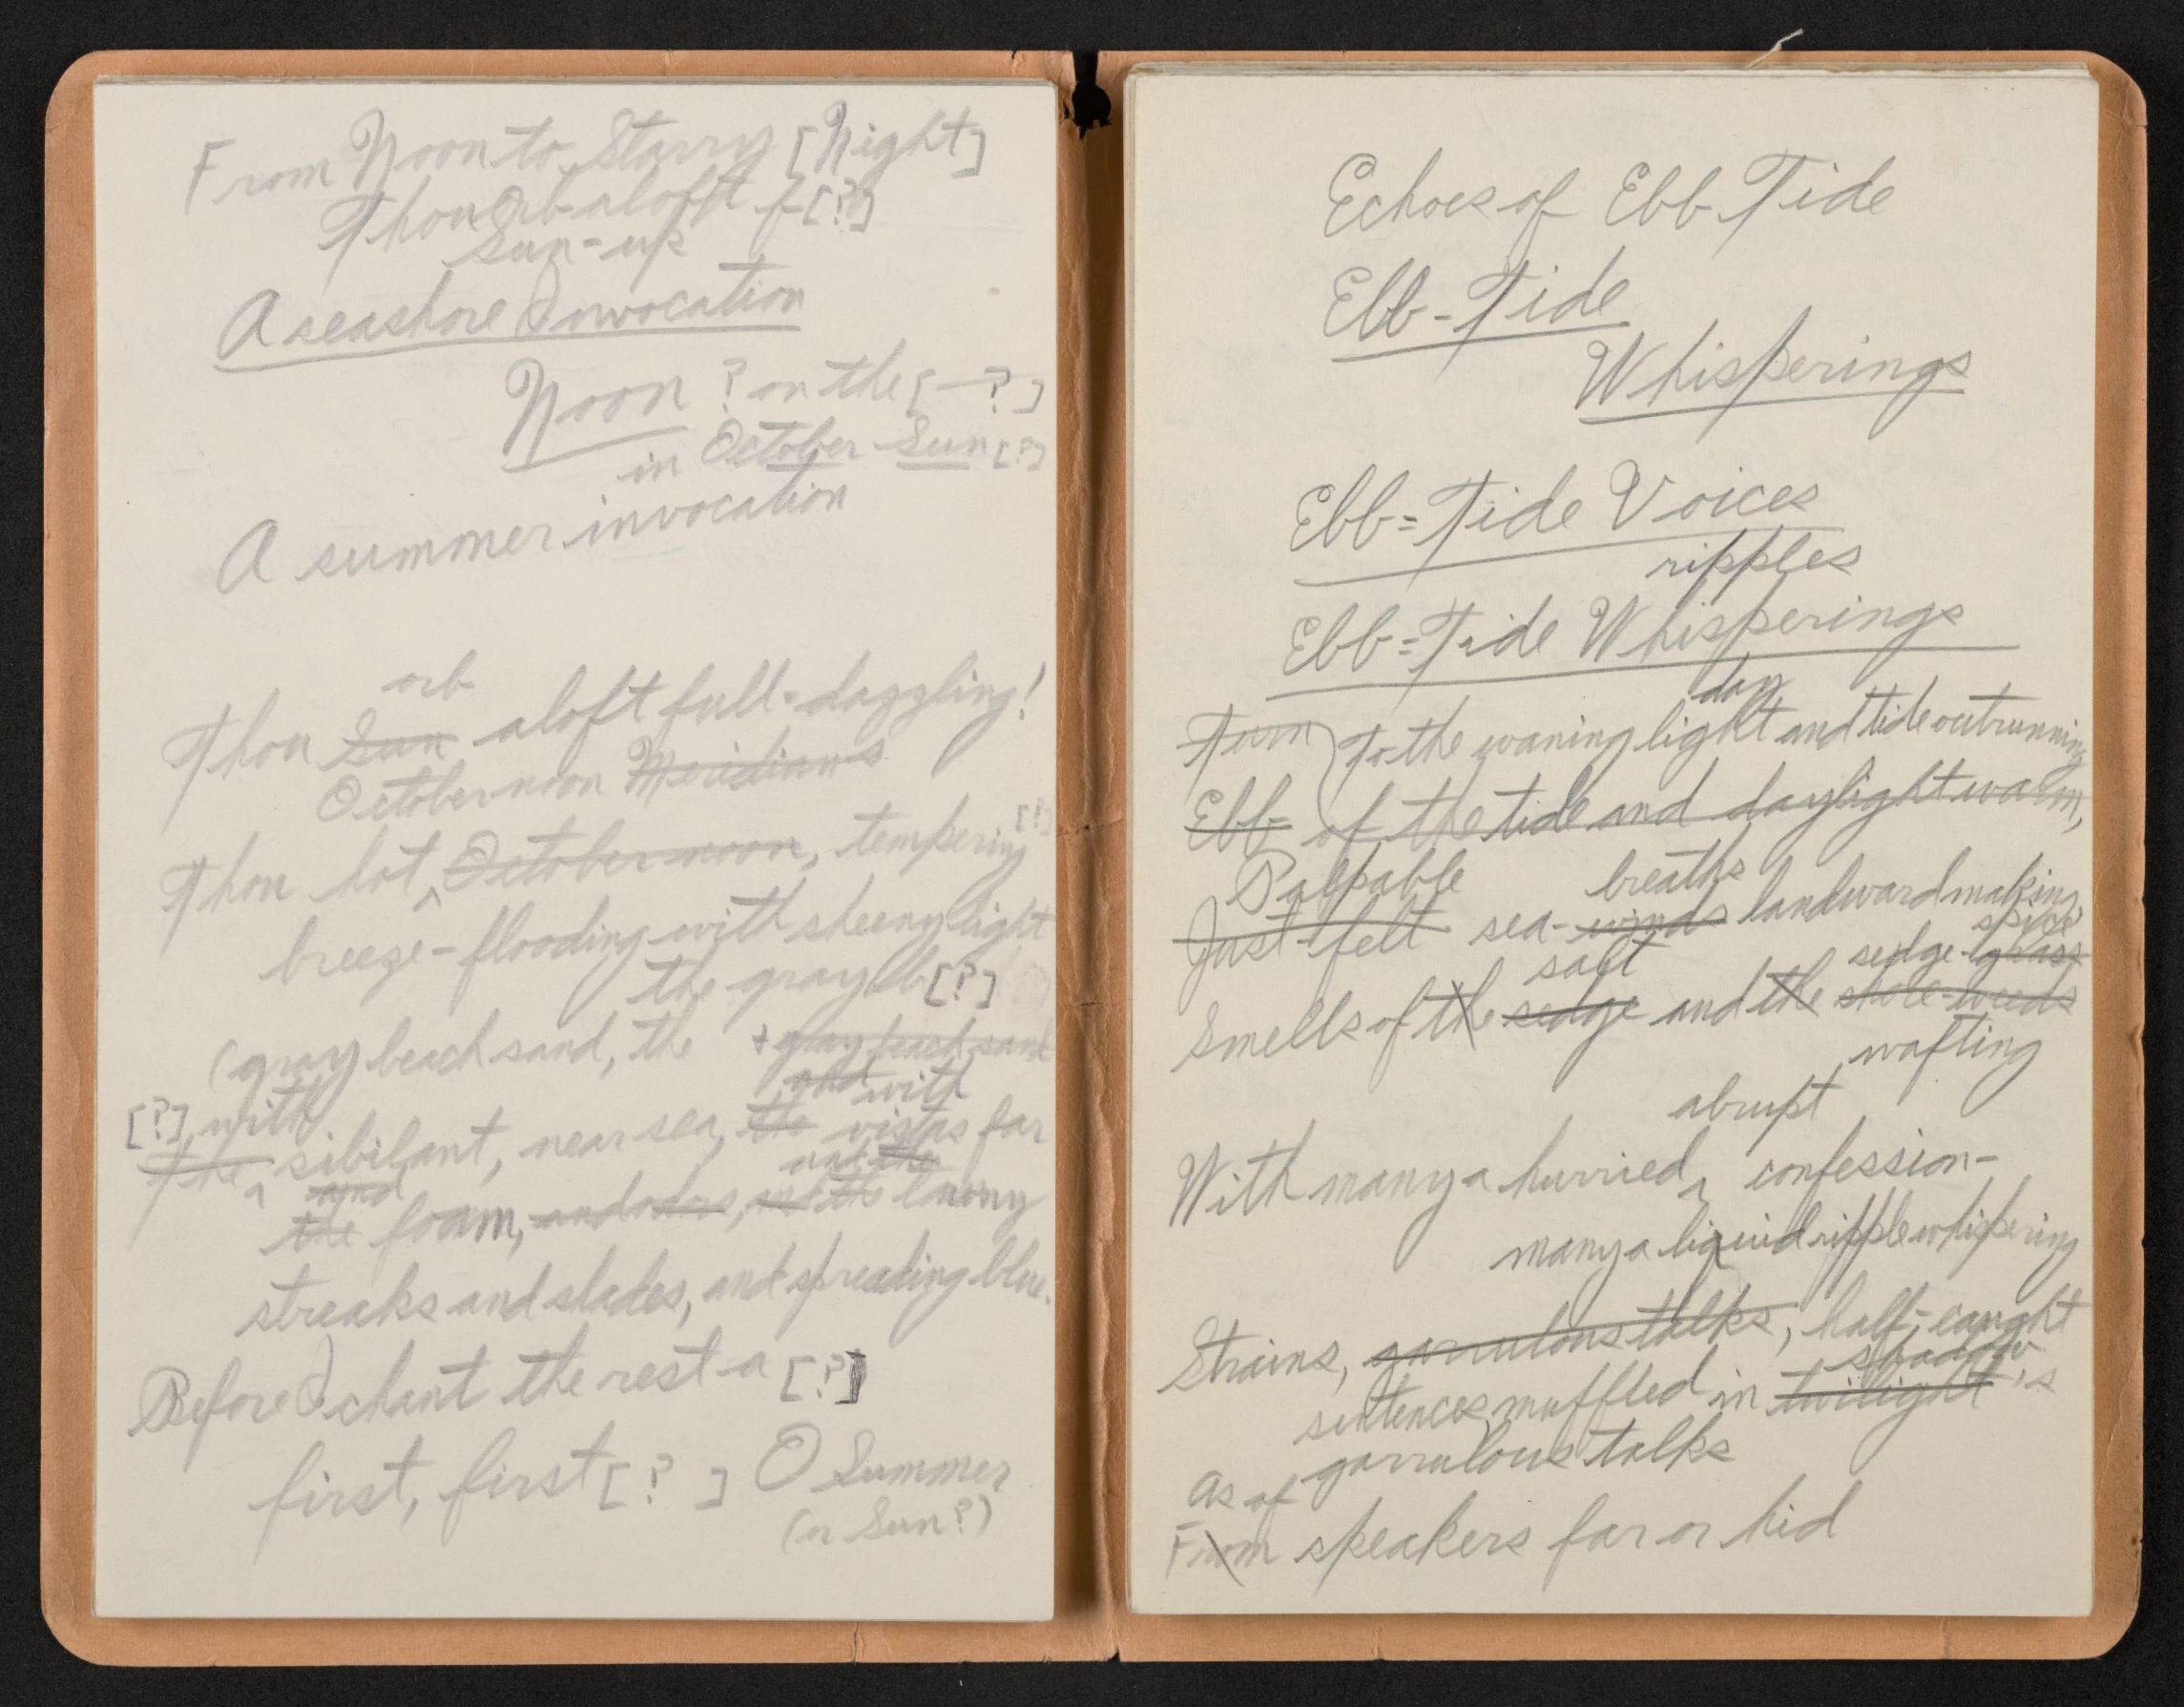 From Noon to Starry [Night]
Thou Orb aloft f[?]
Sun-up
A seashore Invocation
Noon ? on the [—?]
in October Sun [?]
A summer invocation
orb
Thou Sun aloft full-dazzling!
October noon Meridian's
Thou hot ^ October noon, tempering [?]
breeze-flooding with sheeny light
the gray b[?]
(gray beach sand, the + gray beach sand
and with
[?] with
The ^ sibilant, near sea, the vistas far
and
the foam, and, and the tawny
streaks and slades, and spreading blue.
Before I chant the rest a [?]
first, first [? ] O Summer
(or Sun?)
Echoes of Ebb Tide
Ebb-Tide
Whisperings
Ebb=Tide Voices
ripples
Ebb=Tide Whisperings
day
Turn To the waning light and tide outrunning
Ebb- of the tide and daylight warm,
Palpable breaths
Just-felt sea-winds landward making,
spice
salt sedge-grass
Smells of the sedge and the shore-weeds
wafting
abrupt
With many a hurried ^ confession-
many a liquid ripple whispering
Strains, garrulous talks, half-caught
shadow
sentences muffled in twilight's
garrulous talks
As of
From speakers far or hid